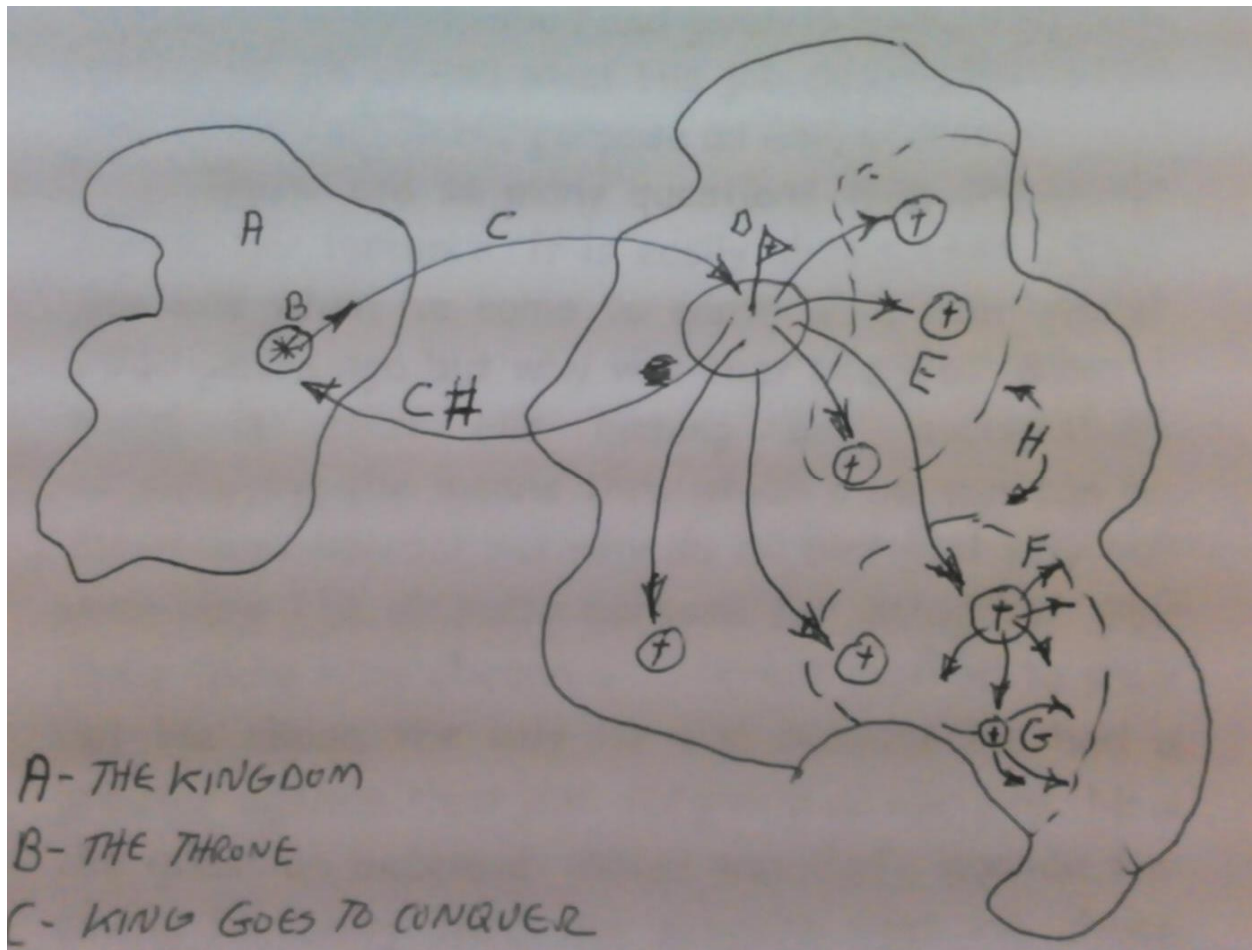 A
B
C
C#
D
E
H
F
G
A- THE KINGDOM
B- THE THRONE
C- KING GOES TO CONQUER